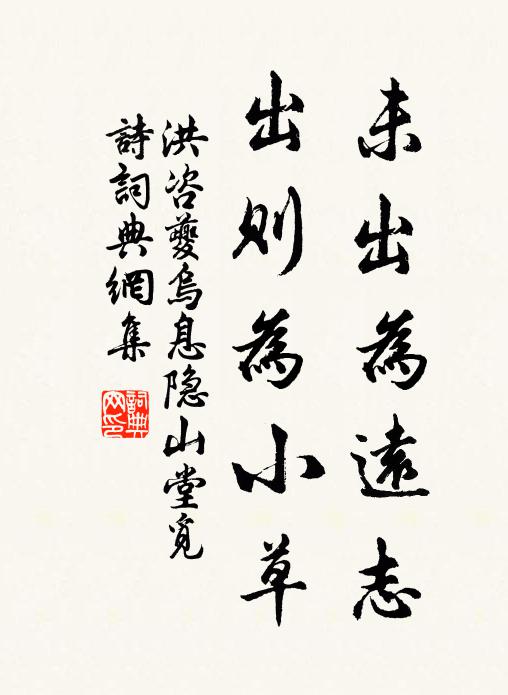 未出為遠志
出則為小草
洪咨夔烏息隐山堂覓
詩詞典網集
詞典
网印